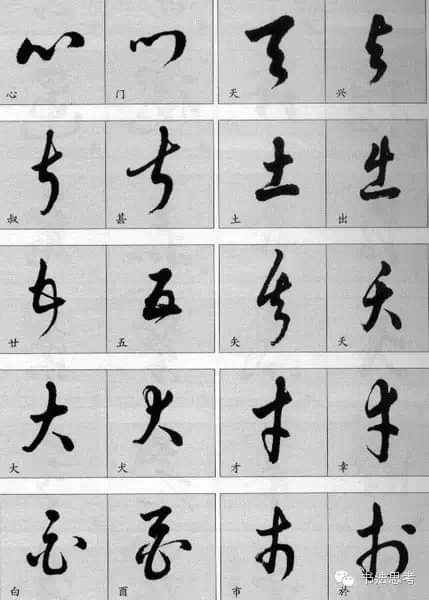 心 门 天 兴
叔 甚 土 出
廿 五 矢 夭
大 犬 才 幸
白 酉 市 於
书法思考